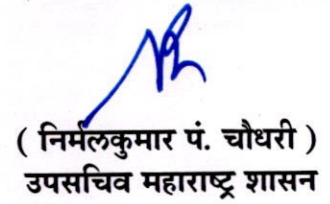 ( निर्मलकुमार पं. चौधरी )
उपसचिव महाराष्ट्र शासन